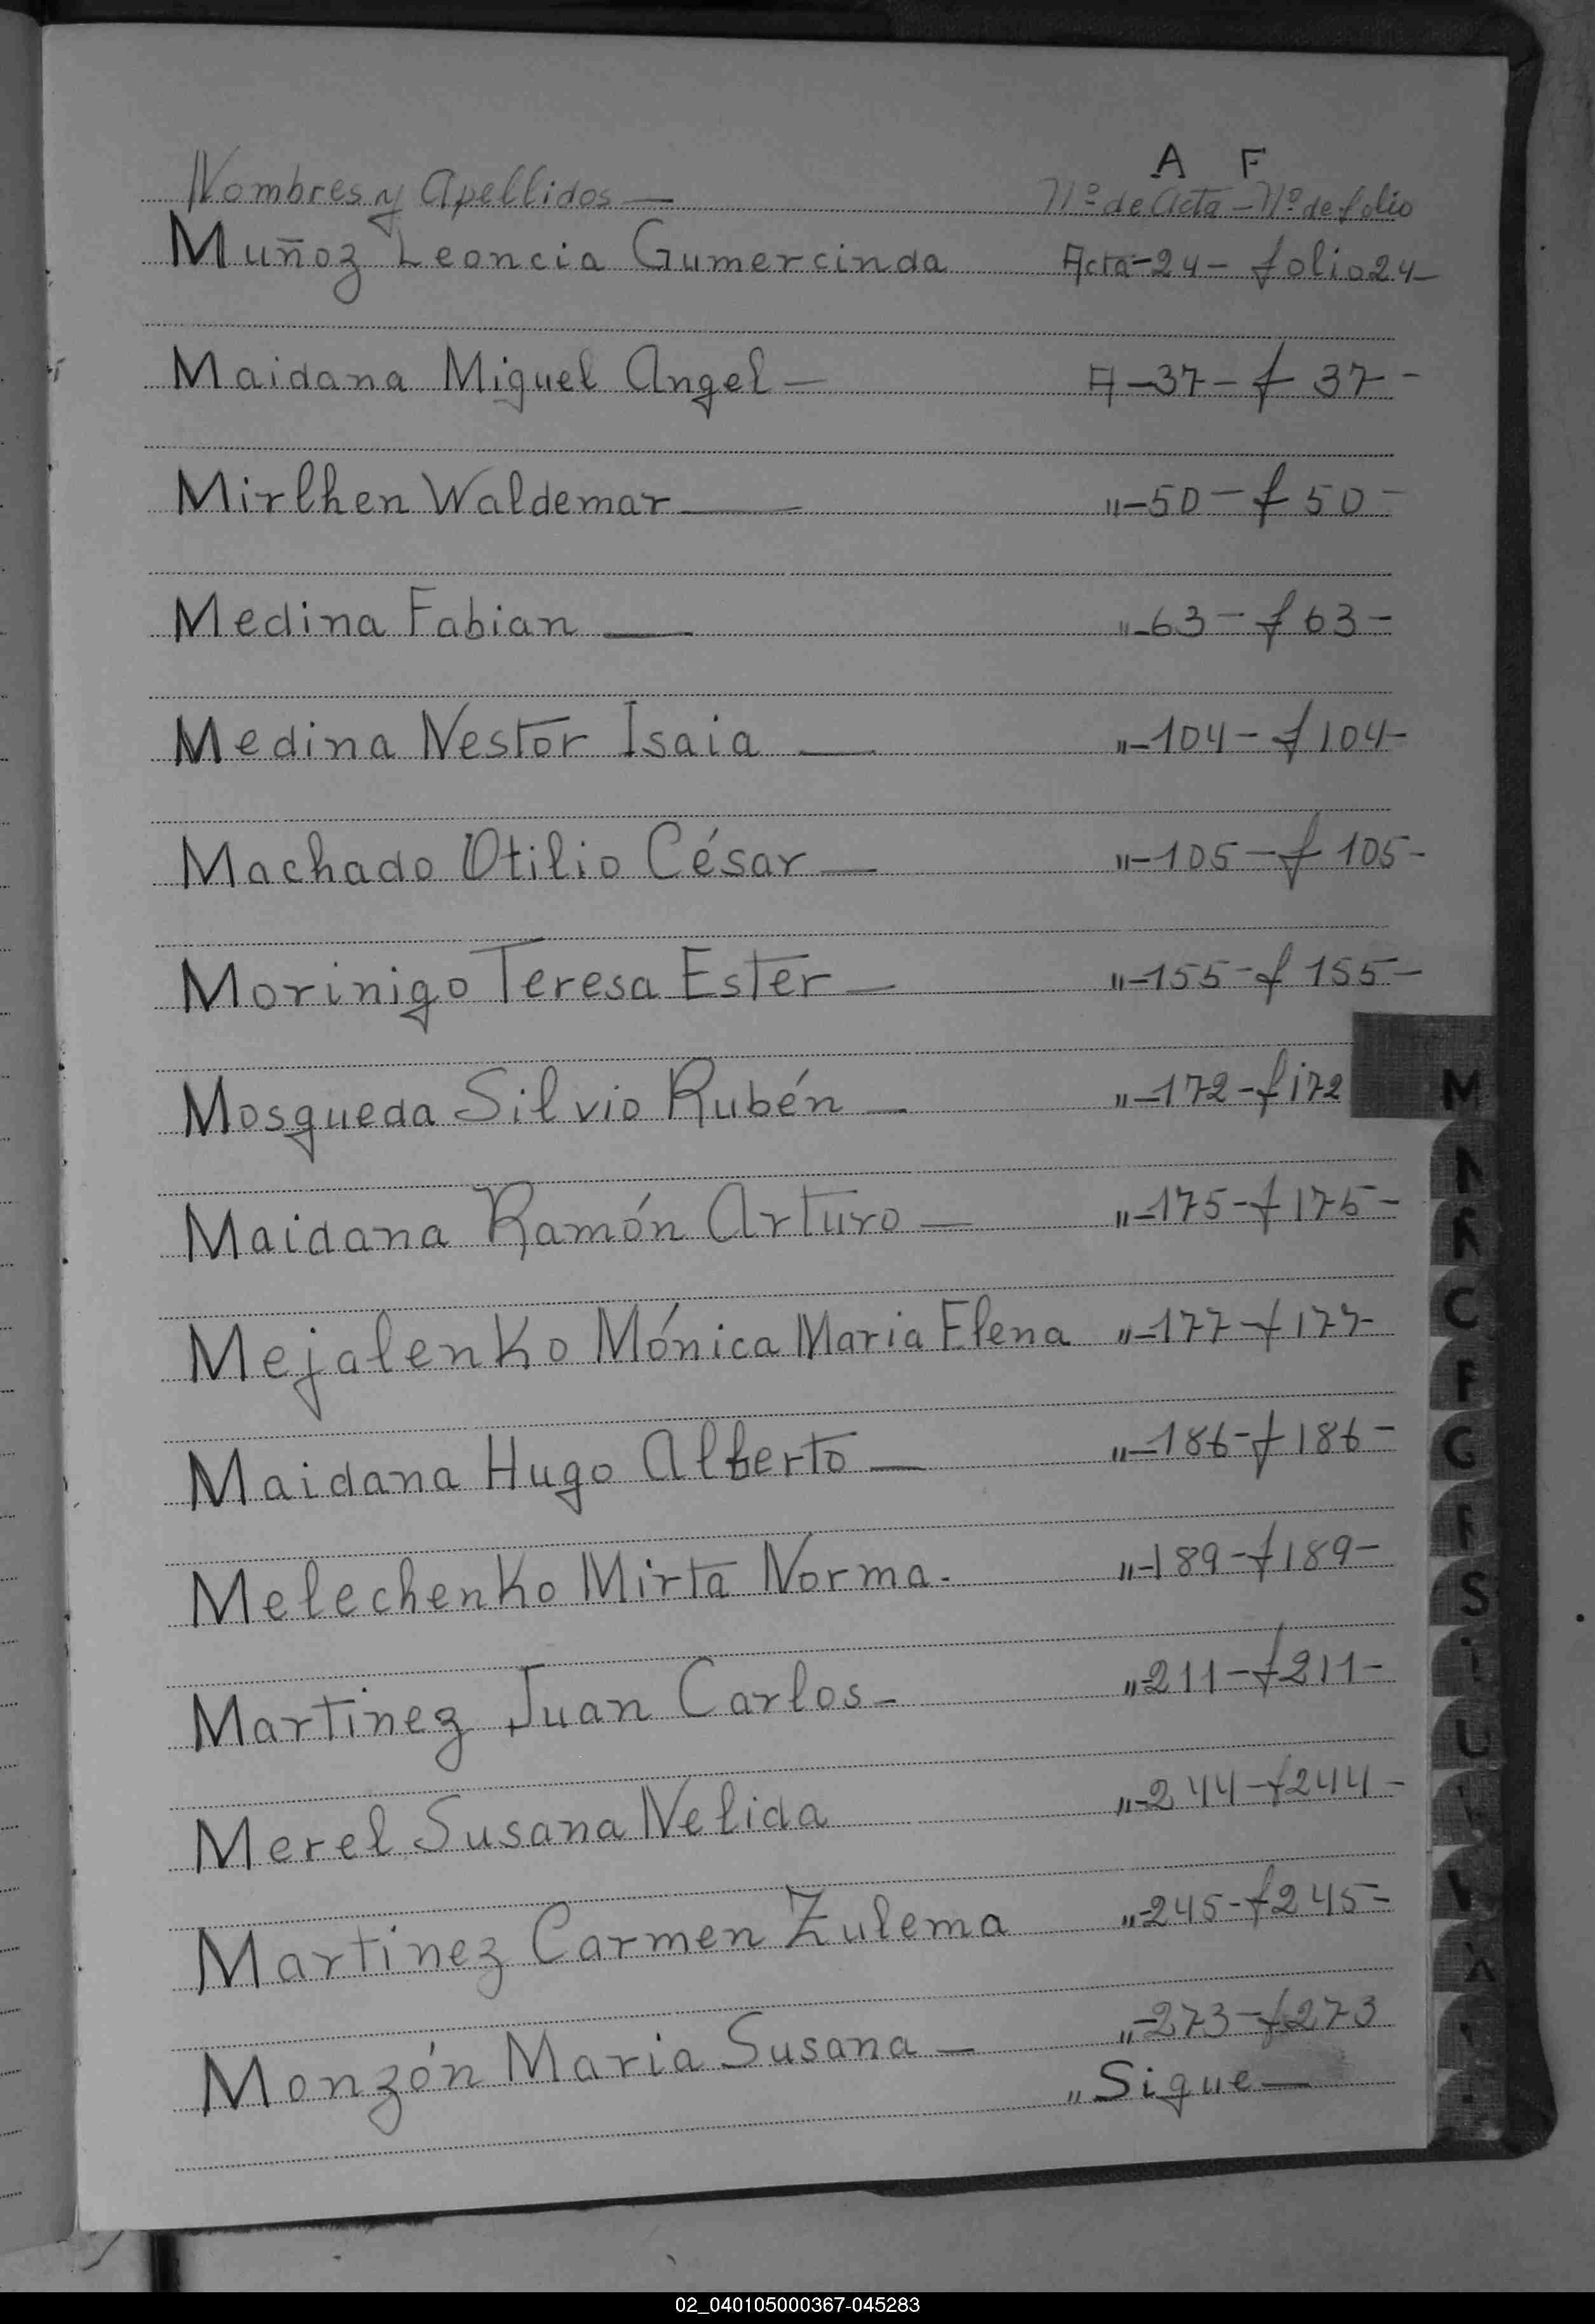 A F
Nombres y Apellidos — Nº de Acta - Nº de folio
Muñoz Leoncia Gumercinda Acta - 24 - folio 24 -
Maidana Miguel Angel — A - 37 - f 37 -
Mirlhen Waldemar — " - 50 - f 50 -
Medina Fabian — " - 63 - f 63 -
Medina Nestor Isaia — " - 104 - f 104 -
Machado Otilio César — " - 105 - f 105 -
Morinigo Teresa Ester — " - 155 - f 155 -
Mosqueda Silvio Rubén — " - 172 - f 172
M
Maidana Ramón Arturo — " - 175 - f 175 -
Mejalenko Mónica Maria Elena " - 177 - f 177 -
C
F
Maidana Hugo Alberto — " - 186 - f 186 -
G
Melechenko Mirta Norma - " - 189 - f 189 -
S
Martinez Juan Carlos - " - 211 - f 211 -
U
Merel Susana Nelida " - 244 - f 244 -
Martinez Carmen Zulema " - 245 - f 245 =
Monzón Maria Susana — " - 273 - f 273
" Sigue —
02_040105000367-045283